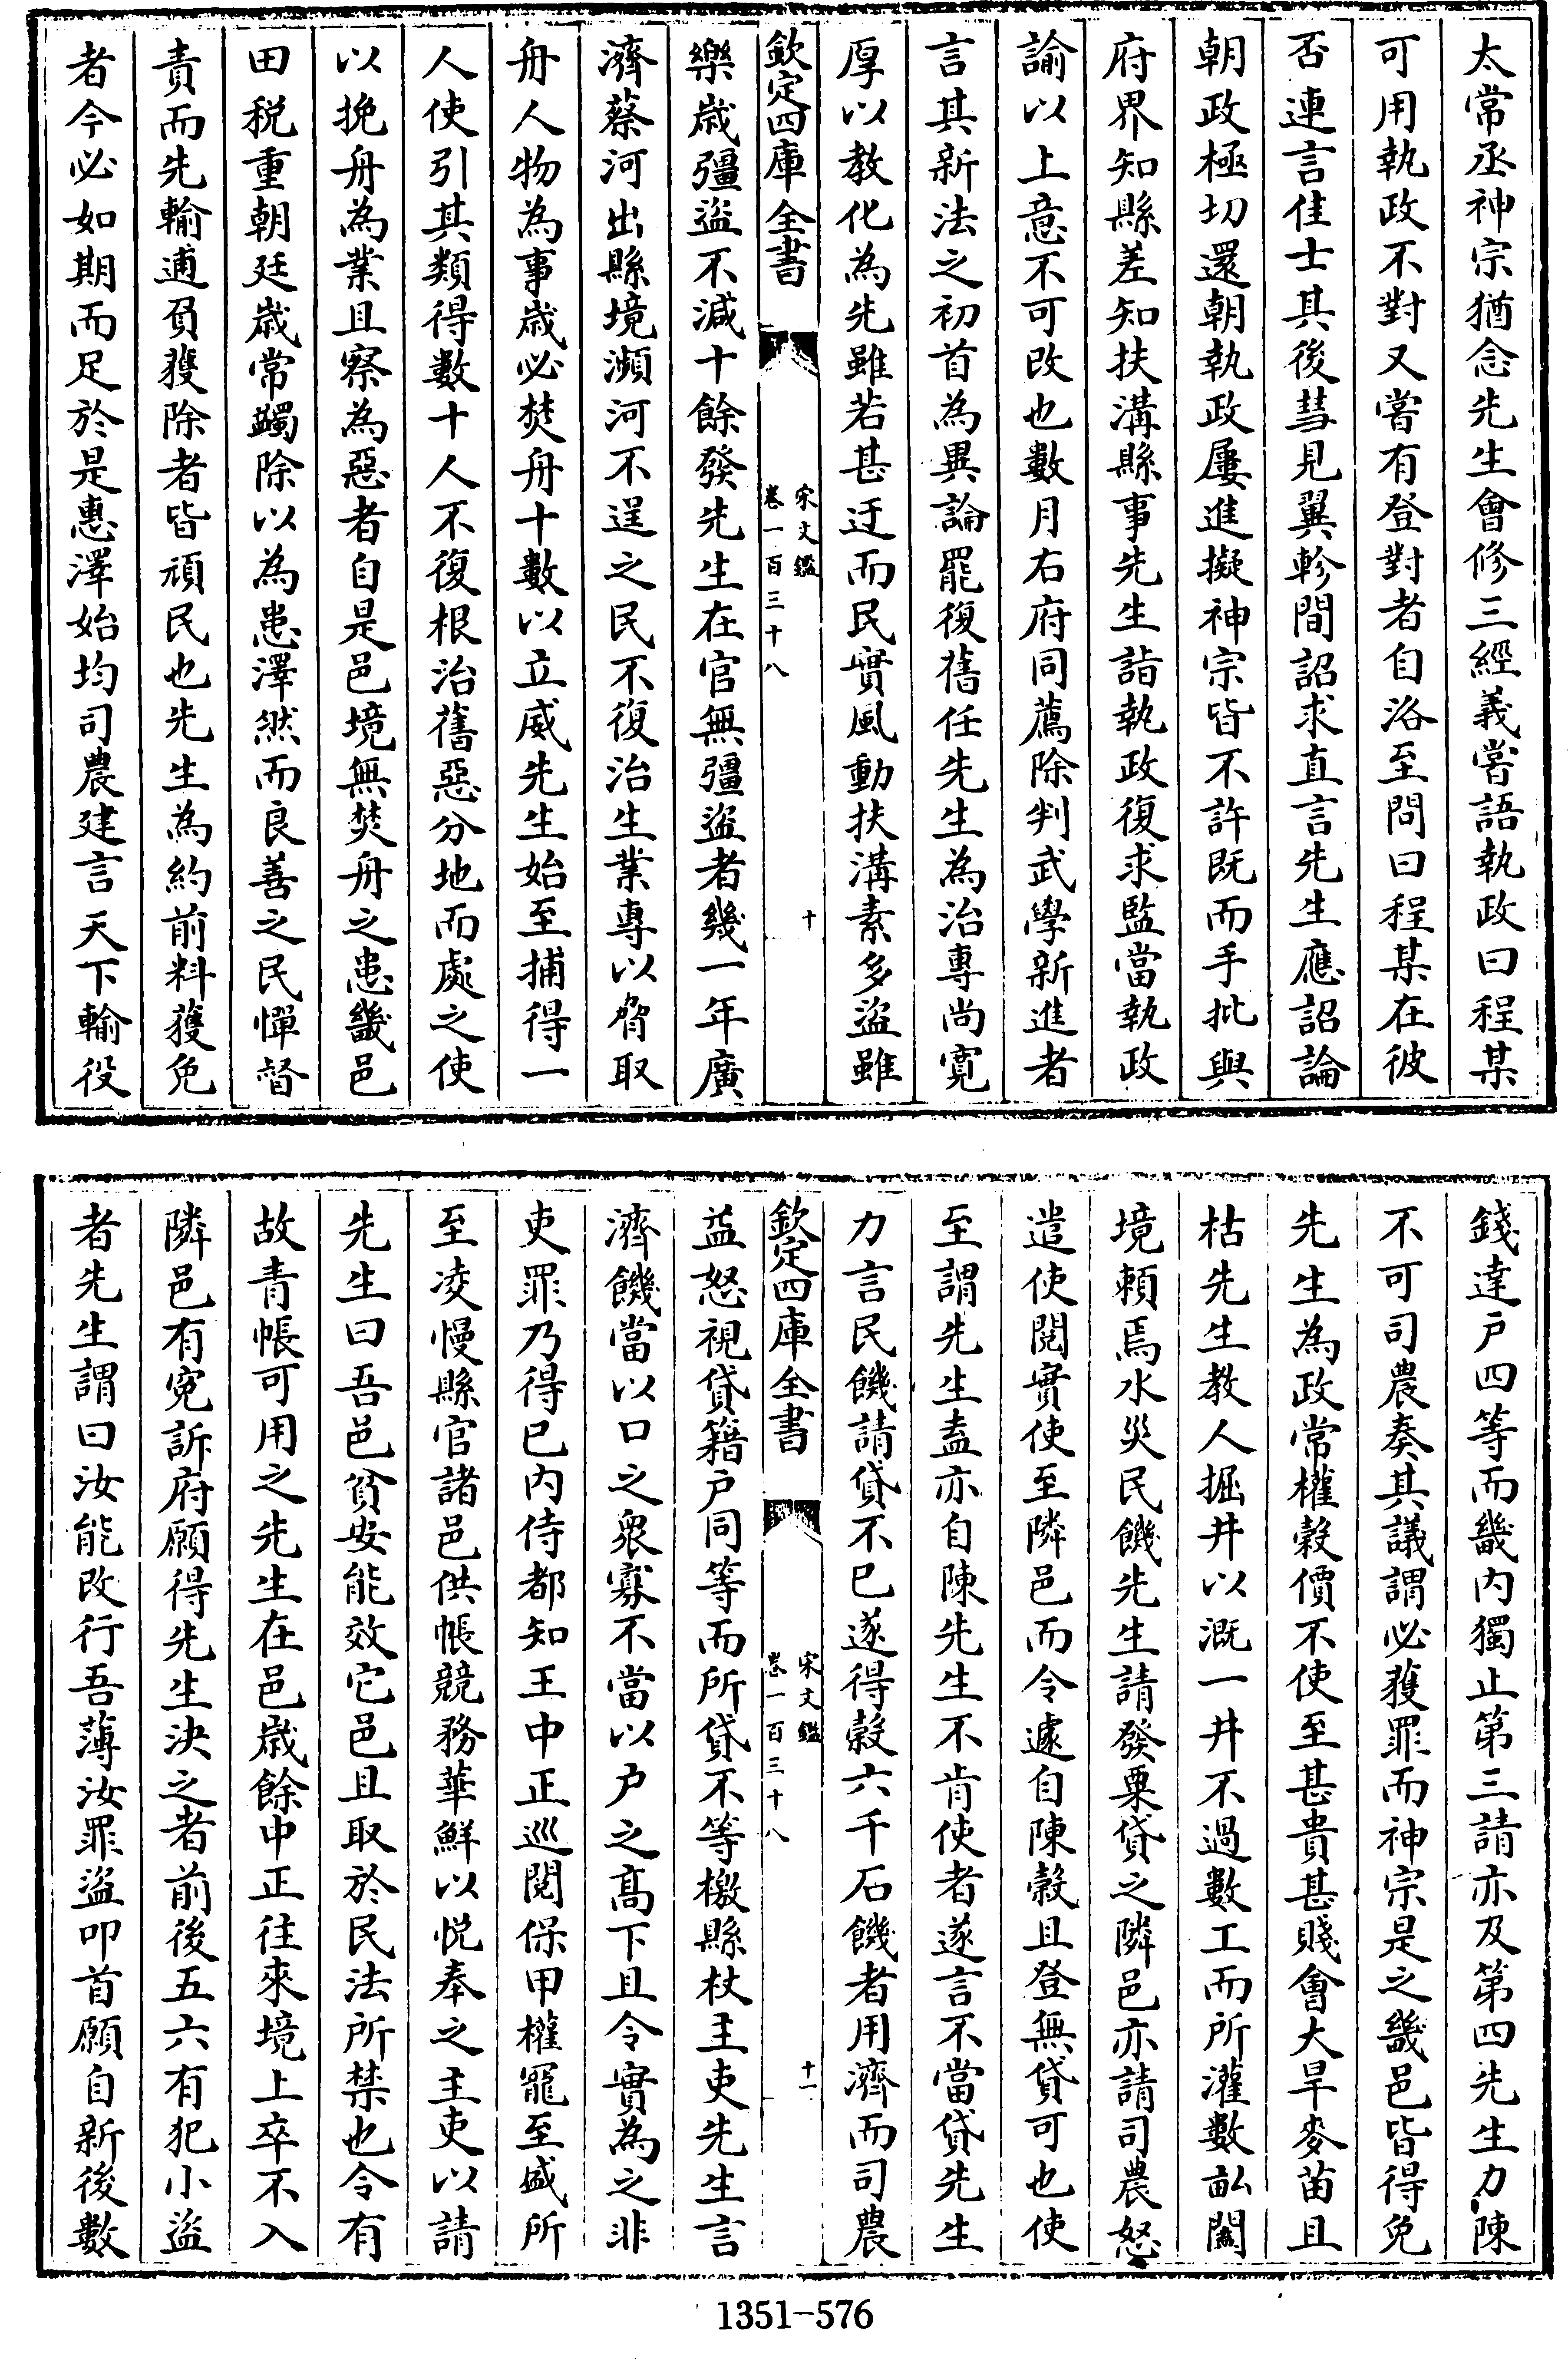 太常丞神宗猶念先生會修三經義嘗語執政曰程某
可用執政不對又嘗有登對者自洛至問曰程某在彼
否連言佳士其後彗見翼軫間詔求直言先生應詔論
朝政極切還朝執政屢進擬神宗皆不許既而手批與
府界知縣差知扶溝縣事先生詣執政復求監當執政
諭以上意不可改也數月右府同薦除判武學新進者
言其新法之初首為異論罷復舊任先生為治專尚寛
厚以教化為先雖若甚迂而民實風動扶溝素多盜雖
欽定四庫全書
宋文鑑
卷一百三十八
十
樂歲彊盜不減十餘發先生在官無彊盜者幾一年廣
濟蔡河出縣境瀕河不逞之民不復治生業專以脅取
舟人物為事歲必焚舟十數以立威先生始至捕得一
人使引其類得數十人不復根治舊惡分地而處之使
以挽舟為業且察為惡者自是邑境無焚舟之患畿邑
田税重朝廷歲常蠲除以為惠澤然而良善之民憚督
責而先輸逋負獲除者皆頑民也先生為約前料獲免
者今必如期而足於是惠澤始均司農建言天下輸役
錢達户四等而畿内獨止第三請亦及第四先生力陳
不可司農奏其議謂必獲罪而神宗是之畿邑皆得免
先生為政常權穀價不使至甚貴甚賤會大旱麥苗且
枯先生教人掘井以溉一井不過數工而所灌數畝闔
境賴焉水災民饑先生請發粟貸之隣邑亦請司農怒
遣使閱實使至隣邑而令遽自陳穀且登無貸可也使
至謂先生盍亦自陳先生不肯使者遂言不當貸先生
力言民饑請貸不已遂得穀六千石饑者用濟而司農
欽定四庫全書
宋文鑑
卷一百三十八
十一
益怒視貸籍户同等而所貸不等檄縣杖主吏先生言
濟饑當以口之衆寡不當以户之髙下且令實為之非
吏罪乃得已内侍都知王中正巡閱保甲權寵至盛所
至凌慢縣官諸邑供帳競務華鮮以悦奉之主吏以請
先生曰吾邑貧安能效它邑且取於民法所禁也令有
故青帳可用之先生在邑歲餘中正往來境上卒不入
隣邑有寃訴府願得先生決之者前後五六有犯小盜
者先生謂曰汝能改行吾薄汝罪盜叩首願自新後數
1351-576